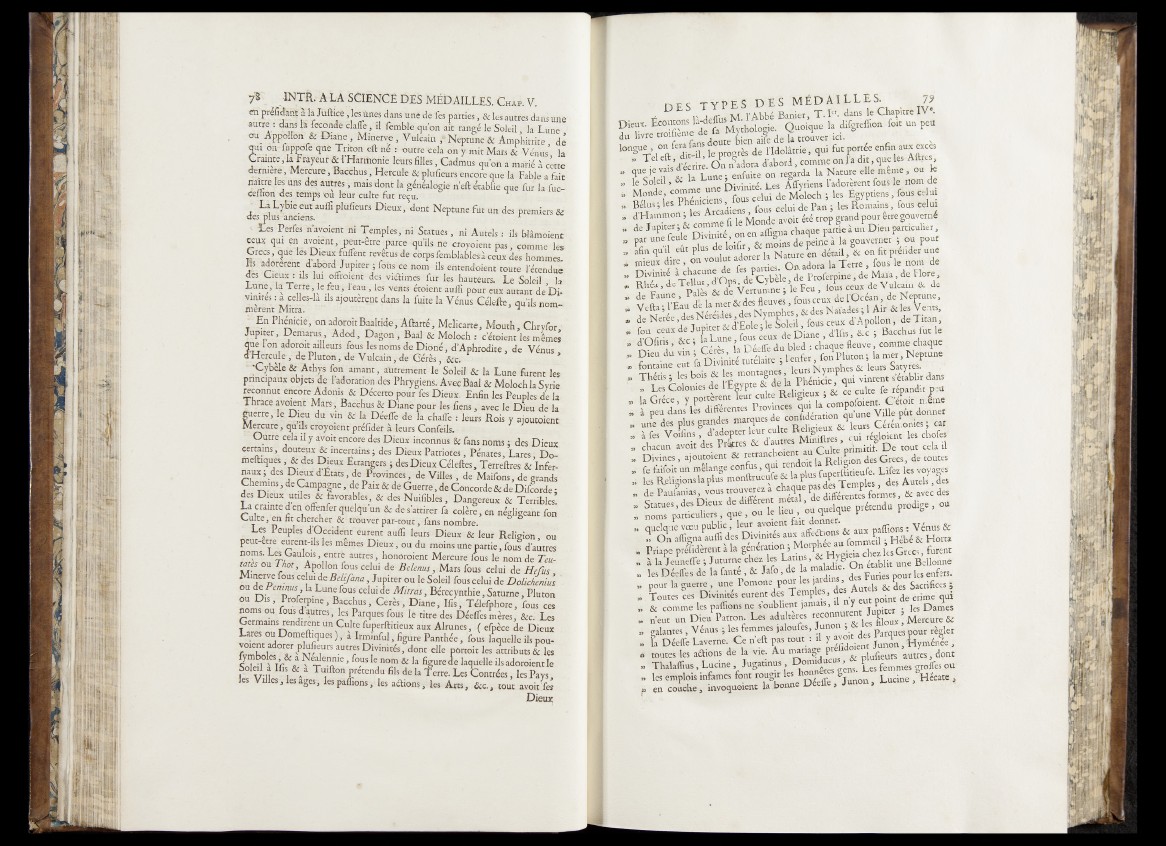 78 INTR. A LA SCIENCE DES MÉDAILLES. CHAP. V.
en préſidant à la Juſtice, les unes dans une de ſes parties, & les autres dans une
autre : dans la ſeconde claſſe, il ſemble qu'on ait rangé le Soleil, la Lune,
ou Appollon & Diane, Minerve, Vulcain, Neptune & Amphitrite, de
qui on ſuppoſe que Triton eſt né : outre cela on y mit Mars & Vénus, la
Crainte, la Frayeur & l'Harmonie leurs filles, Cadmus qu'on a marié à cette
dernière, Mercure, Bacchus, Hercule & pluſieurs encore que la Fable a fait
naitre les uns des autres, mais dont la généalogie n'eſt établie que ſur la ſuc-
ceſſion des temps où leur culte fut reçu.
La Lybie eut auſſi pluſieurs Dieux, dont Neptune fut un des premiers &
des plus anciens.
Les Perſes n'avoient ni Temples, ni Statues, ni Autels : ils blâmoient
ceux qui en avoient, peut-être parce qu'ils ne croyoient pas, comme les
Grecs, que les Dieux fuſſent revêtus de corps ſemblables à ceux des hommes.
Ils adorèrent d'abord Jupiter ; ſous ce nom ils entendoient toute l'étendue
des Cieux : ils lui offroient des victimes ſur les hauteurs. Le Soleil, la
Lune, la Terre, le feu, l'eau, les vents étoient auſſi pour eux autant de Di-
vinités : à celles-là ils ajoutèrent dans la ſuite la Vénus Céleſte, qu'ils nom-
mèrent Mitra.
En Phénicie, on adoroit Baaltide, Aſtarté, Melicarte, Mouth, Chryſor,
Jupiter, Demarus, Adod, Dagon, Baal & Moloch : c'étoient les mêmes
que l'on adoroit ailleurs ſous les noms de Dioné, d'Aphrodite, de Vénus,
d'Hercule, de Pluton, de Vulcain, de Cérès, &c.
Cybèle & Athys ſon amant, autrement le Soleil & la Lune furent les
principaux objets de l'adoration des Phrygiens. Avec Baal & Moloch la Syrie
reconnut encore Adonis & Décerto pour ſes Dieux. Enfin les Peuples de la
Thrace avoient Mars, Bacchus & Diane pour les ſiens, avec le Dieu de la
guerre, le Dieu du vin & la Déeſſe de la chaſſe : leurs Rois y ajoutoient
Mercure, qu'ils croyoient préſider à leurs Conſeils.
Outre cela il y avoit encore des Dieux inconnus & ſans noms ; des Dieux
certains, douteux & incertains ; des Dieux Patriotes, Pénates, Lares, Do-
meſtiques, & des Dieux Étrangers ; des Dieux Céleſtes, Terreſtres & Infer-
naux ; des Dieux d'États, de Provinces, de Villes, de Maiſons, de grands
Chemins, de Campagne, de Paix & de Guerre, de Concorde & de Diſcorde ;
des Dieux utiles & favorables, & des Nuiſibles, Dangereux & Terribles.
La crainte d'en offenſer quelqu'un & de s'attirer ſa colère, en négligeant ſon
Culte, en fit chercher & trouver par-tout, ſans nombre.
Les Peuples d'Occident eurent auſſi leurs Dieux & leur Religion, ou
peut-être eurent-ils les mêmes Dieux, ou du moins une partie, ſous d'autres
noms. Les Gaulois, entre autres, honoroient Mercure ſous le nom de Teu-
tatès ou Thot, Apollon ſous celui de Belenus, Mars ſous celui de Heſus,
Minerve ſous celui de Beliſana, Jupiter ou le Soleil ſous celui de Dolichenius
ou de Peninus, la Lune ſous celui de Mitras, Bérecynthie, Saturne, Pluton
ou Dis, Proſerpine, Bacchus, Cerès, Diane, Iſis, Téleſphore, ſous ces
noms ou ſous d'autres, les Parques ſous le titre des Déeſſes mères, &c. Les
Germains rendirent un Culte ſuperſtitieux aux Alrunes, ( eſpèce de Dieux
Lares ou Domeſtiques ), à Irminſul, figure Panthée, ſous laquelle ils pou-
voient adorer pluſieurs autres Divinités, dont elle portoit les attributs & les
ſymboles, & à Néalennie, ſous le nom & la figure de laquelle ils adoroient le
Soleil à Iſis & à Tuiſton prétendu fils de la Terre. Les Contrées, les Pays,
les Villes, les âges, les paſſions, les actions, les Arts, &c., tout avoit ſes
Dieux
DES TYPES DES MÉDAILLES. 79
Dieux. Écoutons là-deſſus M. l'Abbé Banier, T. Ier. dans le Chapitre IVe.
du livre troiſième de ſa Mythologie. Quoique la diſgreſſion ſoit un peu
longue, on ſera ſans doute bien aiſe de la trouver ici.
» Tel eſt, dit-il, le progrès de l'Idolâtrie, qui fut portée enfin aux excès
» que je vais d'écrire. On n'adora d'abord, comme on l'a dit, que les Aſtres,
» le Soleil, & la Lune ; enſuite on regarda la Nature elle même, ou le
» Monde, comme une Divinité. Les Aſſyriens l'adorèrent ſous le nom de
» Bélus ; les Phéniciens, ſous celui de Moloch ; les Egyptiens, ſous celui
» d'Hammon ; les Arcadiens, ſous celui de Pan ; les Romains, ſous celui
» de Jupiter ; & comme ſi le Monde avoit été trop grand pour être gouverné
» par une ſeule Divinité, on en aſſigna chaque partie à un Dieu particulier,
» afin qu'il eût plus de loiſir, & moins de peine à la gouverner ; ou pour
» mieux dire, on voulut adorer la Nature en détail, & on fit préſider une
» Divinité à chacune de ſes parties. On adora la Terre, ſous le nom de
» Rhéa, de Tellus, d'Ops, de Cybèle, de Proſerpine, de Maïa, de Flore,
» de Faune, Palès & de Vertumne ; le Feu, ſous ceux de Vulcain & de
» Veſta ; l'Eau de la mer & des fleuves, ſous ceux de l'Océan, de Neptune,
» de Nerée, des Néréides, des Nymphes, & des Naïades ; l'Air & les Vents,
» ſou ceux de Jupiter & d'Eole ; le Soleil, ſous ceux d'Apollon, de Titan,
» d'Oſiris, &c ; la Lune, ſous ceux de Diane, d'Iſis, &c ; Bacchus fut le
» Dieu du vin ; Cérès, la Déeſſe du bled : chaque fleuve, comme chaque
» fontaine eut ſa Divinité tutélaire ; l'enfer, ſon Pluton ; la mer, Neptune
» Thétis ; les bois & les montagnes, leurs Nymphes & leurs Satyres.
» Les Colonies de l'Egypte & de la Phénicie, qui vintent s'établir dans
» la Gréce, y portèrent leur culte Religieux ; & ce culte ſe répandit peu
» à peu dans les différentes Provinces qui la compoſoient. C'étoit même
» une des plus grandes marques de conſidération qu'une Ville pût donner
» à ſes Voiſins, d'adopter leur culte Religieux & leurs Cérémonies ; car
» chacun avoit des Prêtres & d'autres Miniſtres, qui régloient les choſes
» Divines, ajoutoient & retranchoient au Culte primitif. De tout cela il
» ſe faiſoit un mêlange confus, qui rendoit la Religion des Grecs, de toutes
» les Religions la plus monſtrueuſe & la plus ſuperſtitieuſe. Liſez les voyages
» de Pauſanias, vous trouverez à chaque pas des Temples, des Autels, des
» Statues, des Dieux de différent métal, de différentes formes, & avec des
» noms particuliers, que, ou le lieu, ou quelque prétendu prodige, ou
» quelque vœu public, leur avoient fait donner.
» On aſſigna auſſi des Divinités aux affections & aux paſſions : Vénus &
» Priape préſidèrent à la génération ; Morphée au ſommeil ; Hébé & Horta
» à la Jeuneſſe ; Juturne chez les Latins, & Hygieia chez les Grecs, furent
» les Déeſſes de la ſanté, & Jaſo, de la maladie. On établit une Bellonne
» pour la guerre, une Pomone pour les jardins, des Furies pour les enfers.
» Toutes ces Divinités eurent des Temples, des Autels & des Sacrifices ;
» & comme les paſſions ne s'oublient jamais, il n'y eut point de crime qui
» n'eut un Dieu Patron. Les adultères reconnurent Jupiter ; les Dames
» galantes, Vénus ; les femmes jalouſes, Junon ; & les filoux, Mercure &
» la Déeſſe Laverne. Ce n'eſt pas tout : il y avoit des Parques pour règler
» toutes les actions de la vie. Au mariage préſidoient Junon, Hyménée,
» Thalaſſius, Lucine, Jugatinus, Domiducus, & pluſieurs autres, dont
» les emplois infames font rougir les honnêtes gens. Les femmes groſſes ou
» en couche, invoquoient la bonne Déeſſe, Junon, Lucine, Hécate,